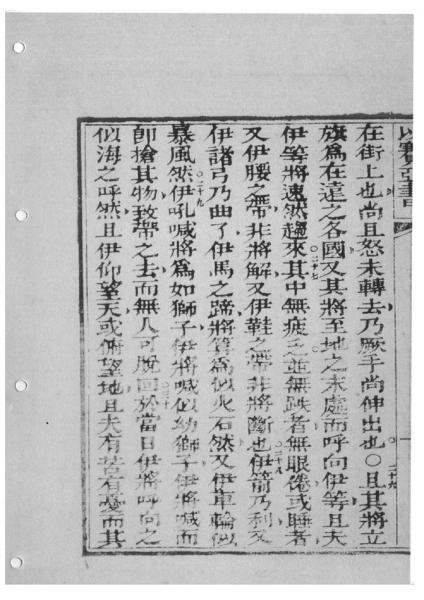 以賽亞書
在街上也尚且怒未轉去乃厥手尚伸出也○二十六且其將立
旗為在遠之各國又其將至地之末處而呼向伊等且夫
伊等將速然趨來○二十七其中無疲乏並無跌者無眼倦或睡者
又伊腰之帶非將解又伊鞋之帶非將斷也○二十八伊箭乃利又
伊諸弓乃曲了伊馬之蹄將算為似火石然又伊車輪似
暴風然○二十九伊吼喊將為如獅子伊將喊似幼獅子伊將喊而
即搶其物致帶之去而無人可脫回○三十於當日伊將呼向之
似海之呼然且伊仰望天或俯望地且夫有苦有憂而其